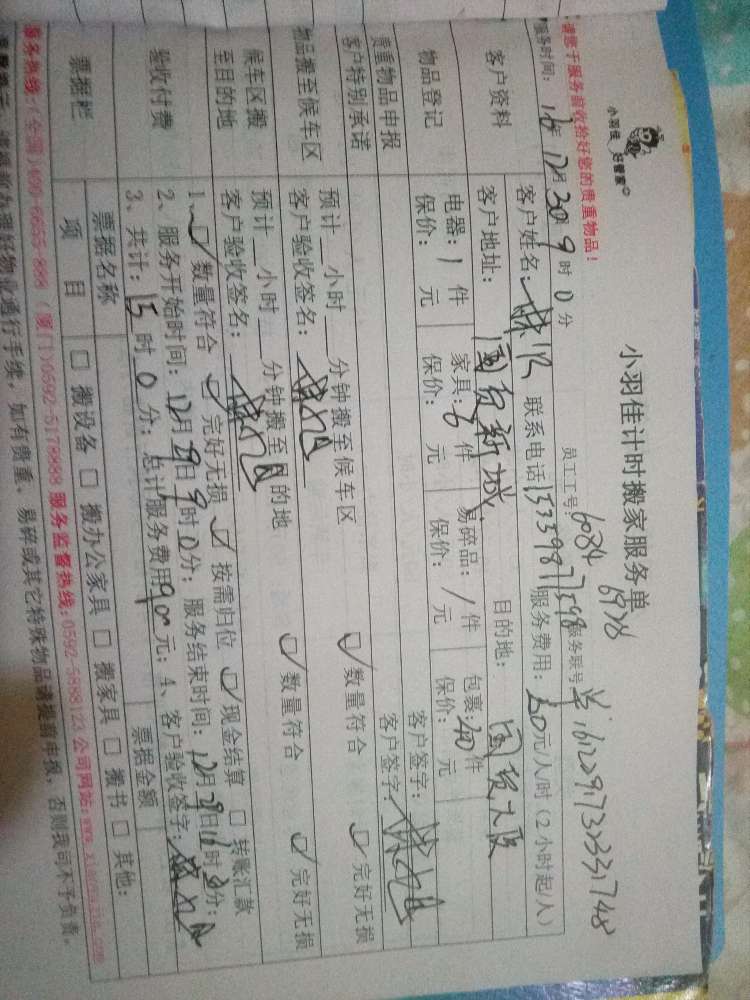 小羽佳 好管家
小羽佳计时搬家服务单
请您于服务前收拾好您的贵重物品！
员工工号: 6084 6978
服务联号 1612091732331748
服务时间: 16年 12月 30 9时 0分
客户资料
客户姓名: 联系电话 13359871598 服务费用: 60元/人/时（2小时起/人）
客户地址: 国贸新城 目的地: 国贸大厦
物品登记
电器: 1 件 家具: 6 件 易碎品: / 件 包裹: 40 件
保价: 元 保价: 元 保价: 元 保价: 元
客户签字:
贵重物品申报
客户特别承诺
客户签字:
物品搬至候车区
预计 小时 分钟搬至候车区 数量符合 完好无损
客户验收签名:
候车区搬至目的地
预计 小时 分钟搬至目的地 数量符合 完好无损
客户验收签名:
验收付费
1、 数量符合 完好无损 按需归位 现金结算 转账汇款
2、服务开始时间: 12月29日9时0分; 服务结束时间: 12月29日 时 分;
3、共计: 15时0分; 总计服务费用900元; 4、客户验收签字:
票据栏
票据名称 票据金额
项目 搬设备 搬办公家具 搬家具 搬书 其他:
服务热线:(全国)400-6655-888 (厦门)0592-5178888 服务监督热线: 0592-5888123 公司网站: www.xiaoyujia.com
请提前办理好物业通行手续，如有贵重、易碎或其它特殊物品请提前申报，否则我司不予负责。